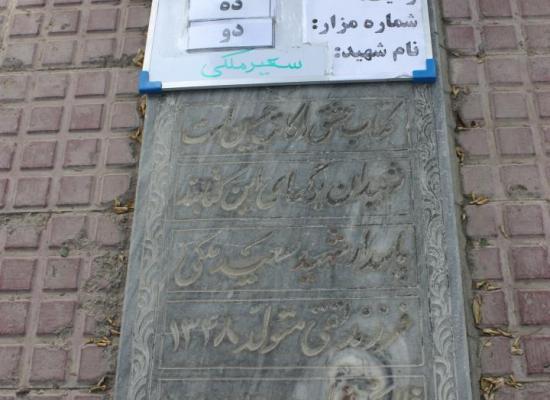 ده
شماره مزار:
دو
نام شهید:
سعید ملکی
کتاب عشق را کاتب حسین است
شهیدان برگهای این کتابند
پاسدار شهید سعید ملکی
فرزند تقی متولد ۱۳۴۸